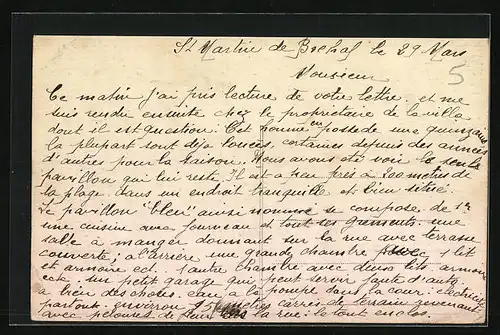 St Martin de Brehal le 29 Mars
5
Monsieur
Ce matin j'ai pris lecture de votre lettre, et me
suis rendu ensuite chez le propriétaire de la villa
dont il est question. Cet homme en possède une quinzaine
la plupart sont déjà louées, certaines depuis des années
d'autres pour la saison. Nous avons été voir le seul
pavillon qui lui reste. Il est à peu près à 200 mètres de
la plage dans un endroit tranquille et bien situé.
Le pavillon "bleu" ainsi nommé se compose de 1°
une cuisine avec fourneau et tout ses une
salle à manger donnant sur la rue avec terrasse
couverte; à l'arrière une grande chambre avec 1 lit
et armoire ect. 1 autre chambre avec deux lits armoire
ect. un petit garage qui peut servir pour l'auto
a bien des choses. eau à la pompe dans la cour. électricité
partout. environ carrés de terrain devant
avec pelouses de fleurs la rue: le tout enclos.